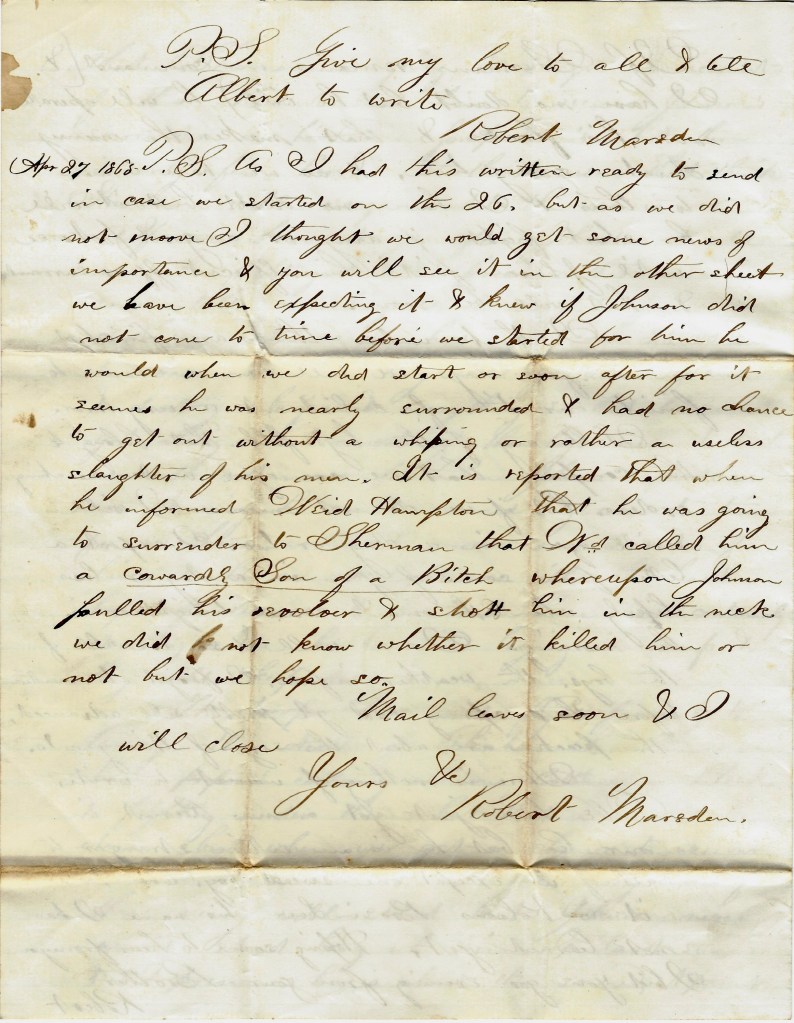 P.S. Give my love to all & tell
Albert to write
Robert Marsden
Apr 27 1865. P.S. As I had this written ready to send
in case we started on the 26. but as we did
not moove I thought we would get some news of
importance & you will see it in the other sheet
we have been expecting it & knew if Johnson did
not come to time before we started for him he
would when we did start or soon after for it
seemes he was nearly surrounded & had no chance
to get out without a whiping or rather an useless
slaughter of his men. It is reported that when
he informed Weid Hampton that he was going
to surrender to Sherman that Wd called him
a Cowardly Son of a Bitch whereupon Johnson
pulled his revolver & shott him in the neck
we did not know whether it killed him or
not but we hope so.
Mail leaves soon & I
will close
Yours &c
Robert Marsden.